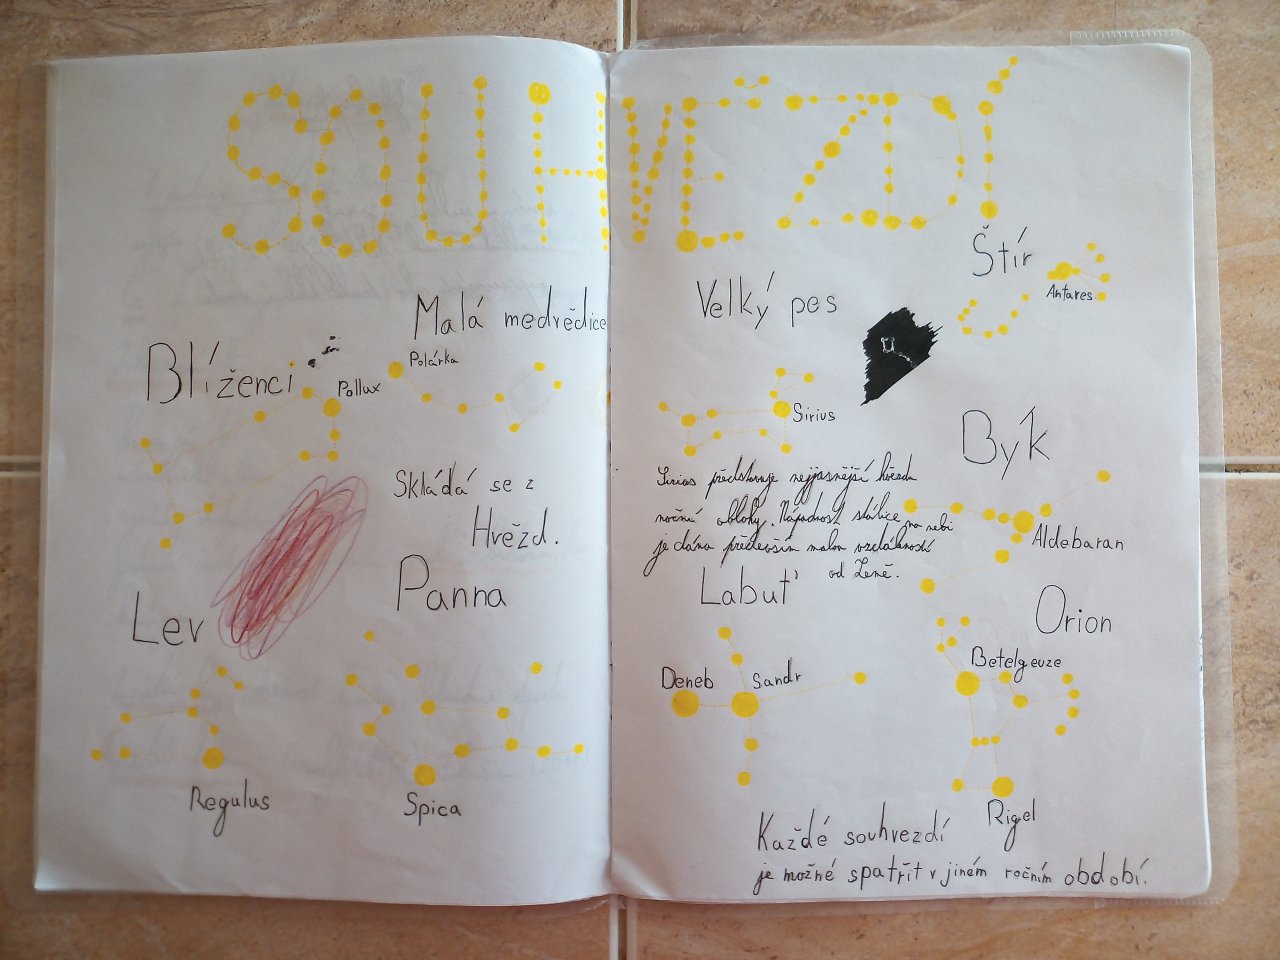 SOUHVĚZDÍ
Malá medvědice
Polárka
Blíženci
Pollux
Skládá se z
Hvězd.
Panna
Lev
Regulus
Spica
Štír
Antares
Velký pes
Sirius
Býk
Sirius představuje nejjasnější hvězdu
noční oblohy. Nápadnost stálice na nebi
je dána především malou vzdáleností
od Země.
Aldebaran
Labuť
Deneb
Sandr
Orion
Betelgeuze
Rigel
Každé souhvezdí
je možné spatřit v jiném ročním období.